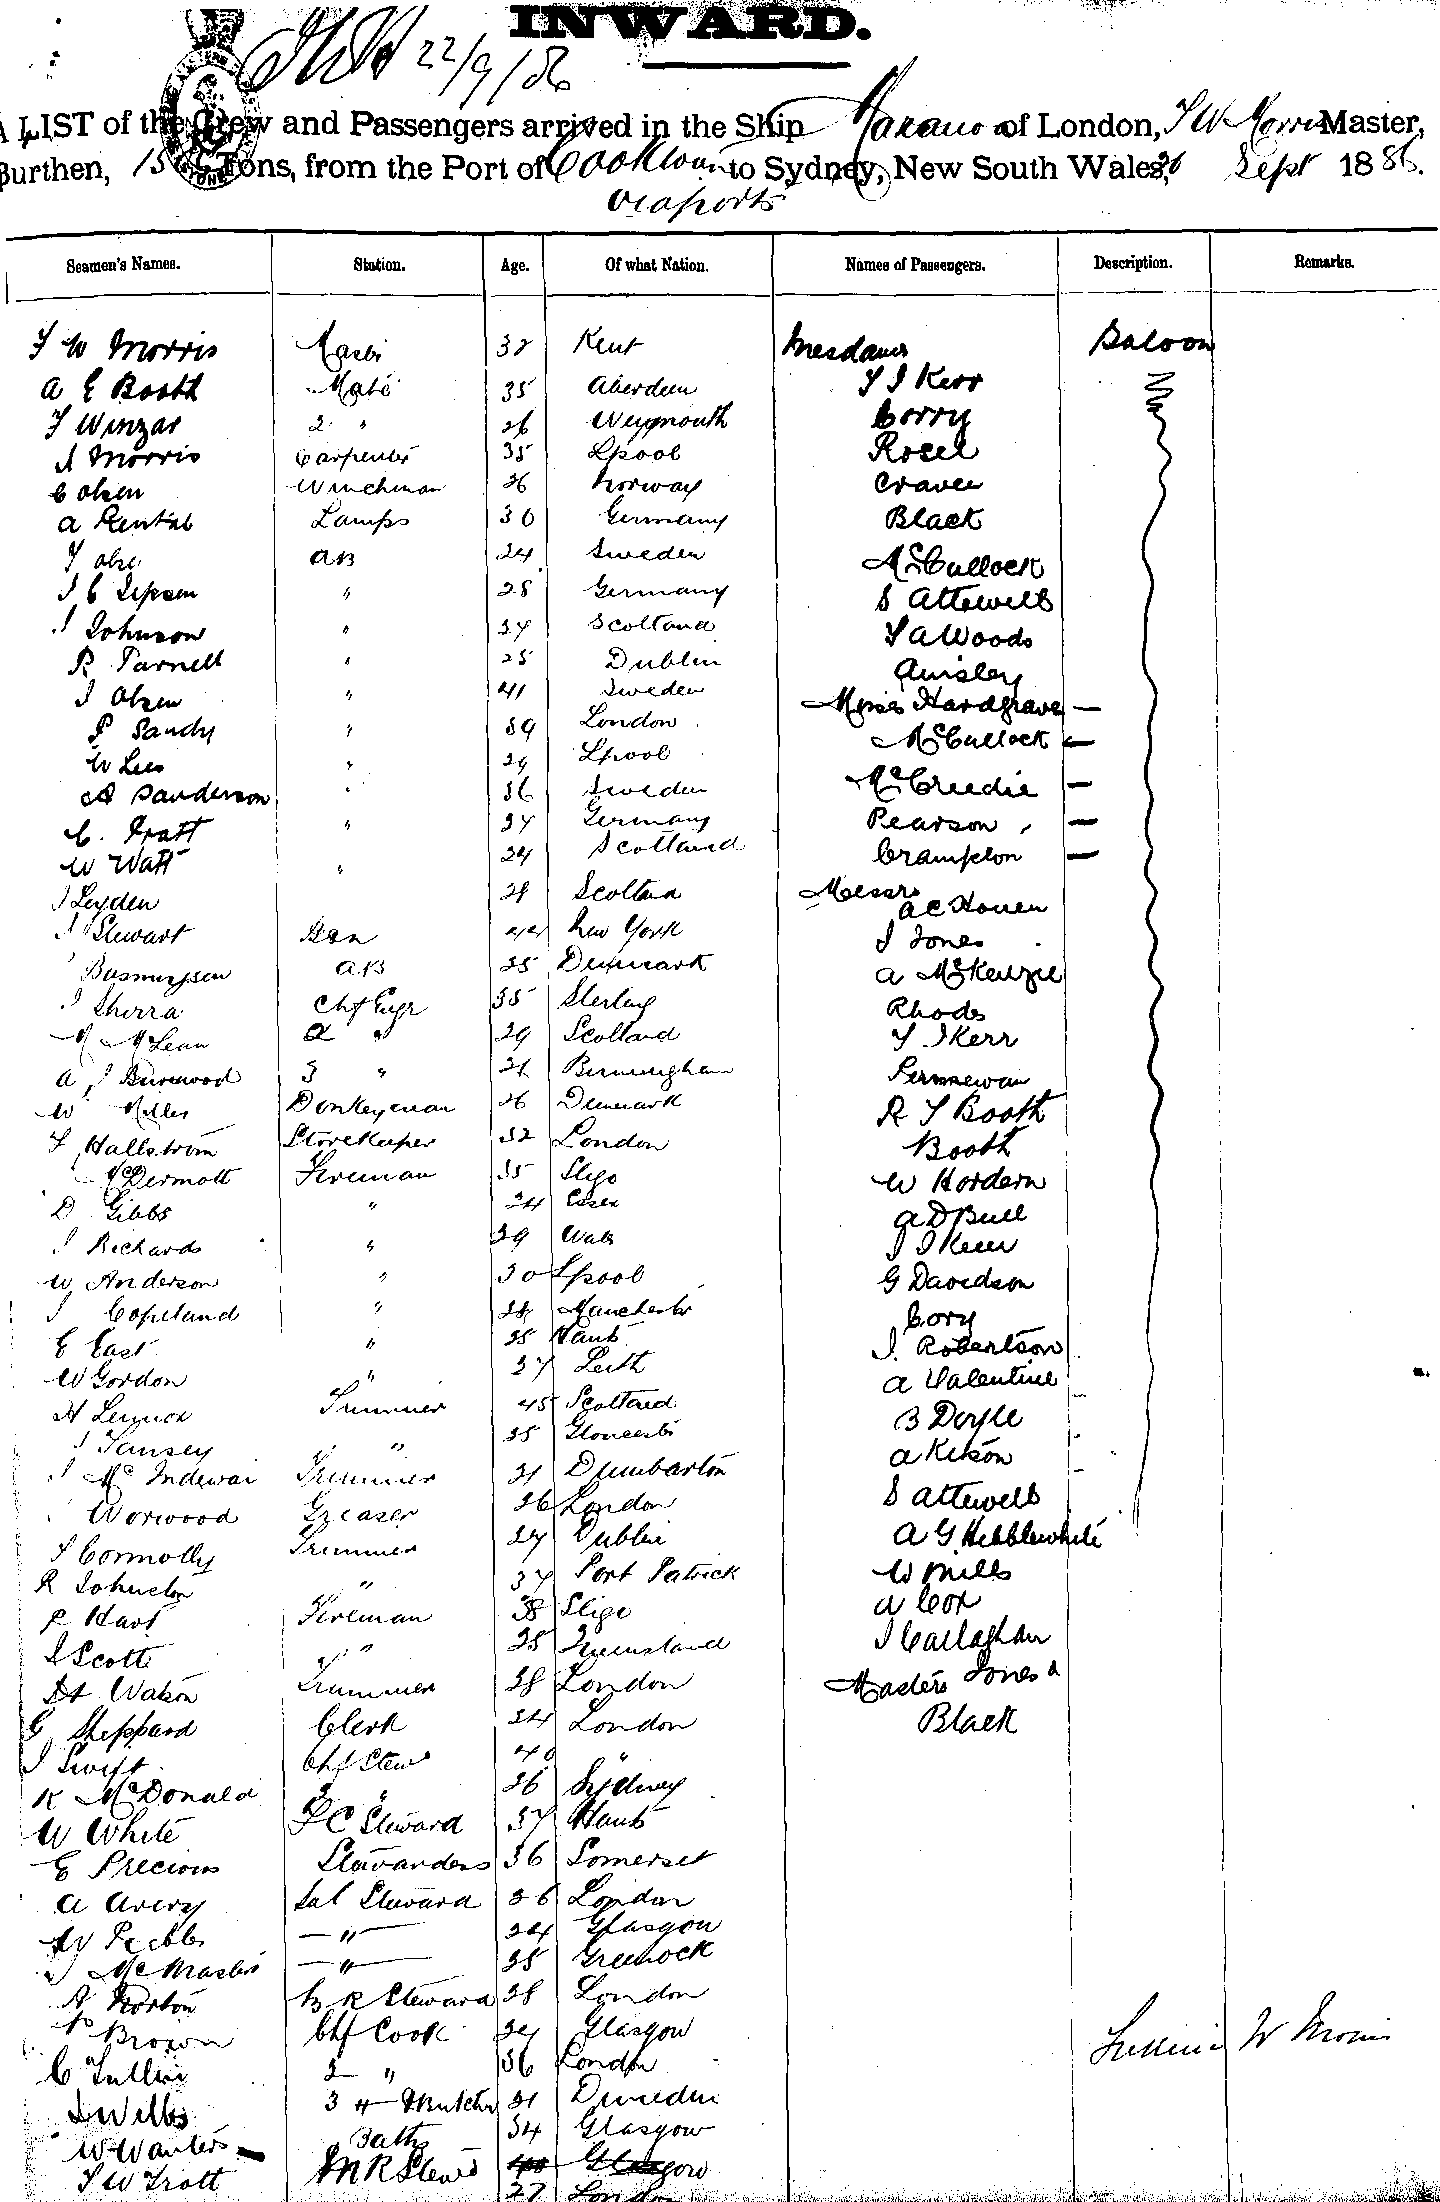 INWARD.
22/9/86
A LIST of the Crew and Passengers arrived in the Ship of London, T W Morris Master,
Burthen, Tons, from the Port of Cooktown to Sydney, New South Wales, Sept 1886.
via ports
Seamen's Names. Station. Age. Of what Nation. Names of Passengers. Description. Remarks.
T W Morris 32 Kent Mesdames Saloon
A E Booth Mate 35 Aberdeen T J Kerr
T Winzar 2 " 26 Weymouth Corry
J Morris Carpenter 35 Lpool
C Olsen Winchman 26 Norway Craven
A Lamps 30 Germany Black
AB 24 Sweden McCullock
J C Jepsen " 28 Germany S Attewell
J Johnson " 37 Scotland T A Woods
R Parnell " 25 Dublin Ainsley
J Olsen " 41 Sweden Misses Hardgrave —
P Sandy " 39 London McCullock —
W Lees " 29 Lpool
A Sanderson " 36 Sweden McCreedie —
C. Pratt " 27 Germany Pearson —
W Watt " 24 Scotland Crampton —
J Leyden 28 Scotland Messrs
A C
J Stewart 44 New York J Jones
AB 25 Denmark A McKenzie
J Chf Engr 35 Rhodes
M McLean 2 " 29 Scotland T J Kerr
A J 3 " Birmingham
W Donkeyman 26 Denmark R T Booth
T Hallstrom Storekeeper 32 London Booth
McDermott Fireman 35 Sligo W Hordern
D Gibbs " 24 Essex A D Bull
J Richards " 29 Wales
W Anderson " 30 Lpool G Davidson
J Copeland " 28 Manchester Cory
E East " 25 Hants J. Robertson
W Gordon " 37 Leith A Valentine
H Lennox Trimmer 45 Scotland B Doyle
J Tansey " 35 Gloucester A
J Trimmer 21 Dumbarton S Attewell
Worwood Greaser 26 London A G Hebblewhite
T Connolly Trimmer 27 Dublin W Mills
R Johnston " 37 Port Patrick A Cox
P Hart Fireman 38 Sligo J Callaghan
J Scott " 25 Queensland
H Watson Trimmer 28 London Masters Jones &
G Sheppard Clerk 24 London Black
J Swift Chf Stew 40 "
K McDonald 2 " 26 Sydney
W White F C Steward 37 Hants
E Precious Stewardess 36 Somerset
A Avery Sal Steward 26 London
W Peebles — " — 24 Glasgow
J McMaster — " — 25 Greenock
A Norton B R Steward 28 London
P Brown Chf Cook 29 Glasgow
C Tullin 2 " 36 London
J Wells 3 " Butcher 21 Dunedin
W Wanters Baths 34 Glasgow
T W Trott M R Steward Glasgow
27 London
W Morris